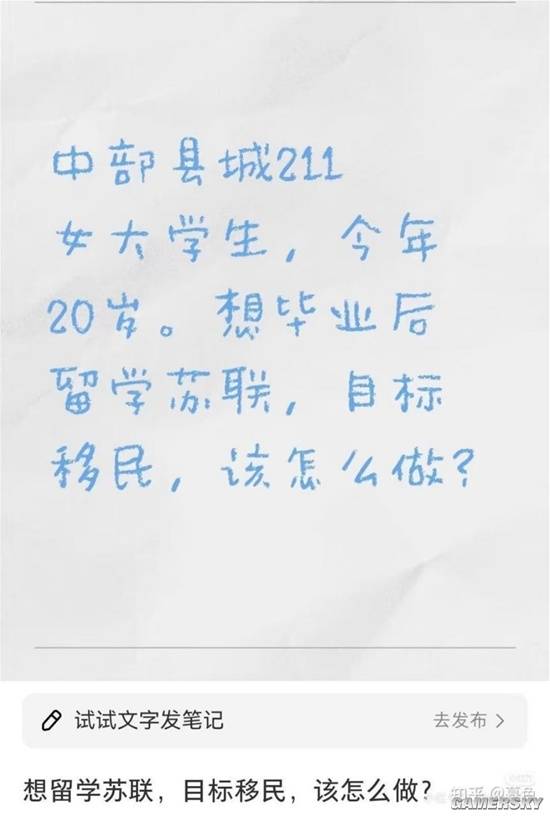 中部县城211
女大学生，今年
20岁。想毕业后
留学苏联，目标
移民，该怎么做？
试试文字发笔记
去发布 >
想留学苏联，目标移民，该怎么做？
知乎 @暮色
GAMERSKY